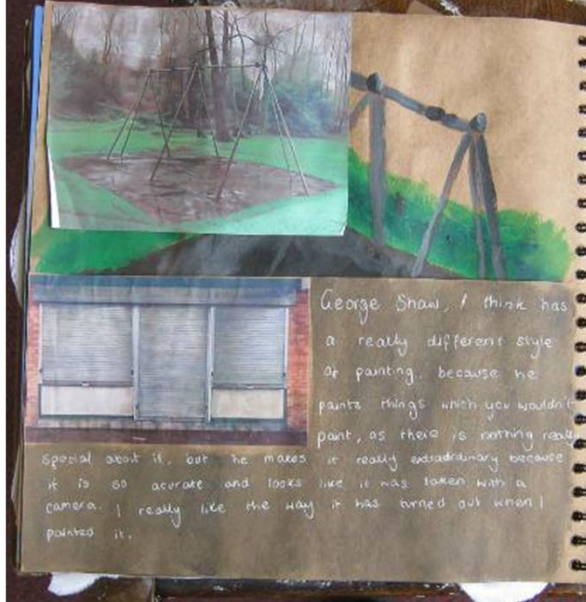 George Shaw, I think has
a really different style
of painting. because he
paints things which you wouldn't
paint, as there is nothing really
special about it, but he makes it really extraordinary because
it is so acurate and looks like it was taken with a
camera. I really like the way it has turned out when I
painted it.